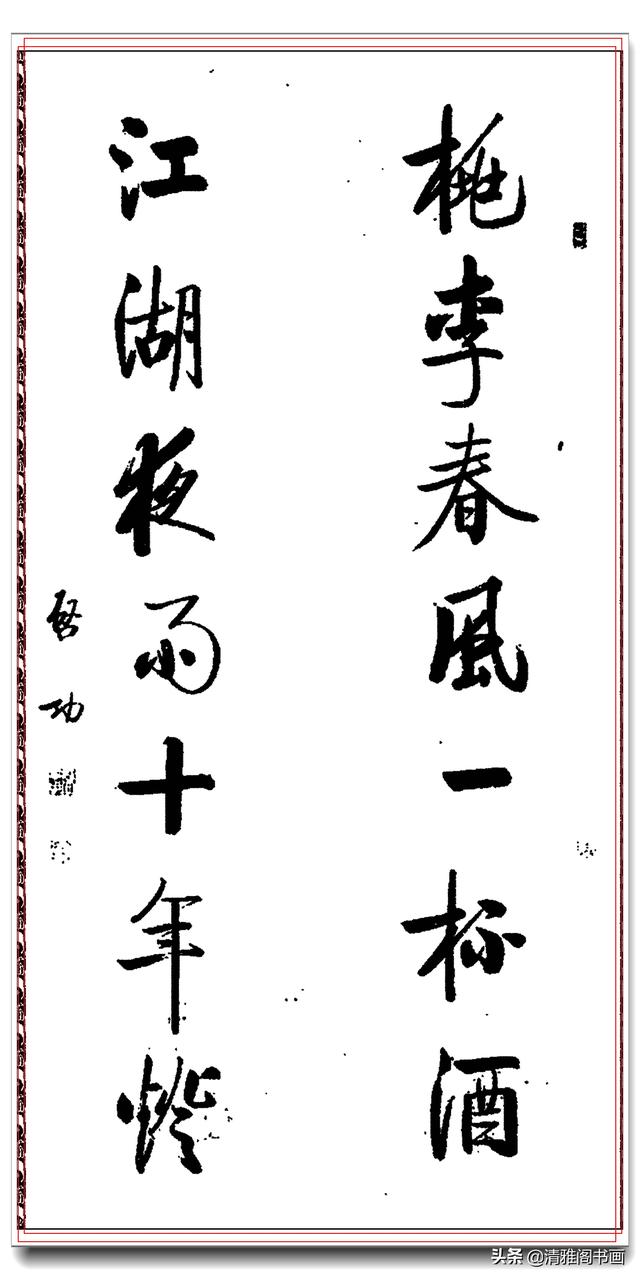 桃李春風一杯酒
江湖夜雨十年燈
啓功
头条 @清雅阁书画